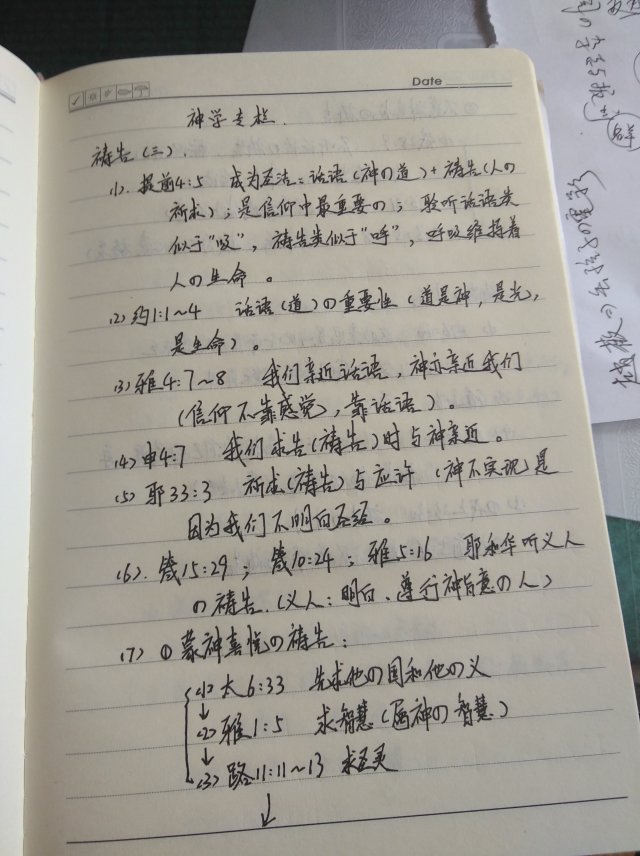 Date
神学专栏.
祷告(三).
(1). 提前4:5 成为圣洁:话语(神の道)+祷告(人の
祈求);是信仰中最重要の;聆听话语类
似于"吸",祷告类似于"呼",呼吸维持着
人の生命。
(2) 约1:1~4 话语(道)の重要性(道是神,是光,
是生命)。
(3) 雅4:7~8 我们亲近话语,神亦亲近我们
(信仰不靠感觉,靠话语)。
(4) 申4:7 我们求告(祷告)时与神亲近。
(5) 耶33:3 祈求(祷告)与应许(神不实现)是
因为我们不明白圣经。
(6). 箴15:29;箴10:24;雅5:16 耶和华听义人
の祷告.(义人:明白、遵行神旨意の人)
(7) ① 蒙神喜悦の祷告:
(1) 太6:33 先求他の国和他の义
↓
(2) 雅1:5 求智慧(属神の智慧)
↓
(3) 路11:11~13 求圣灵
↓